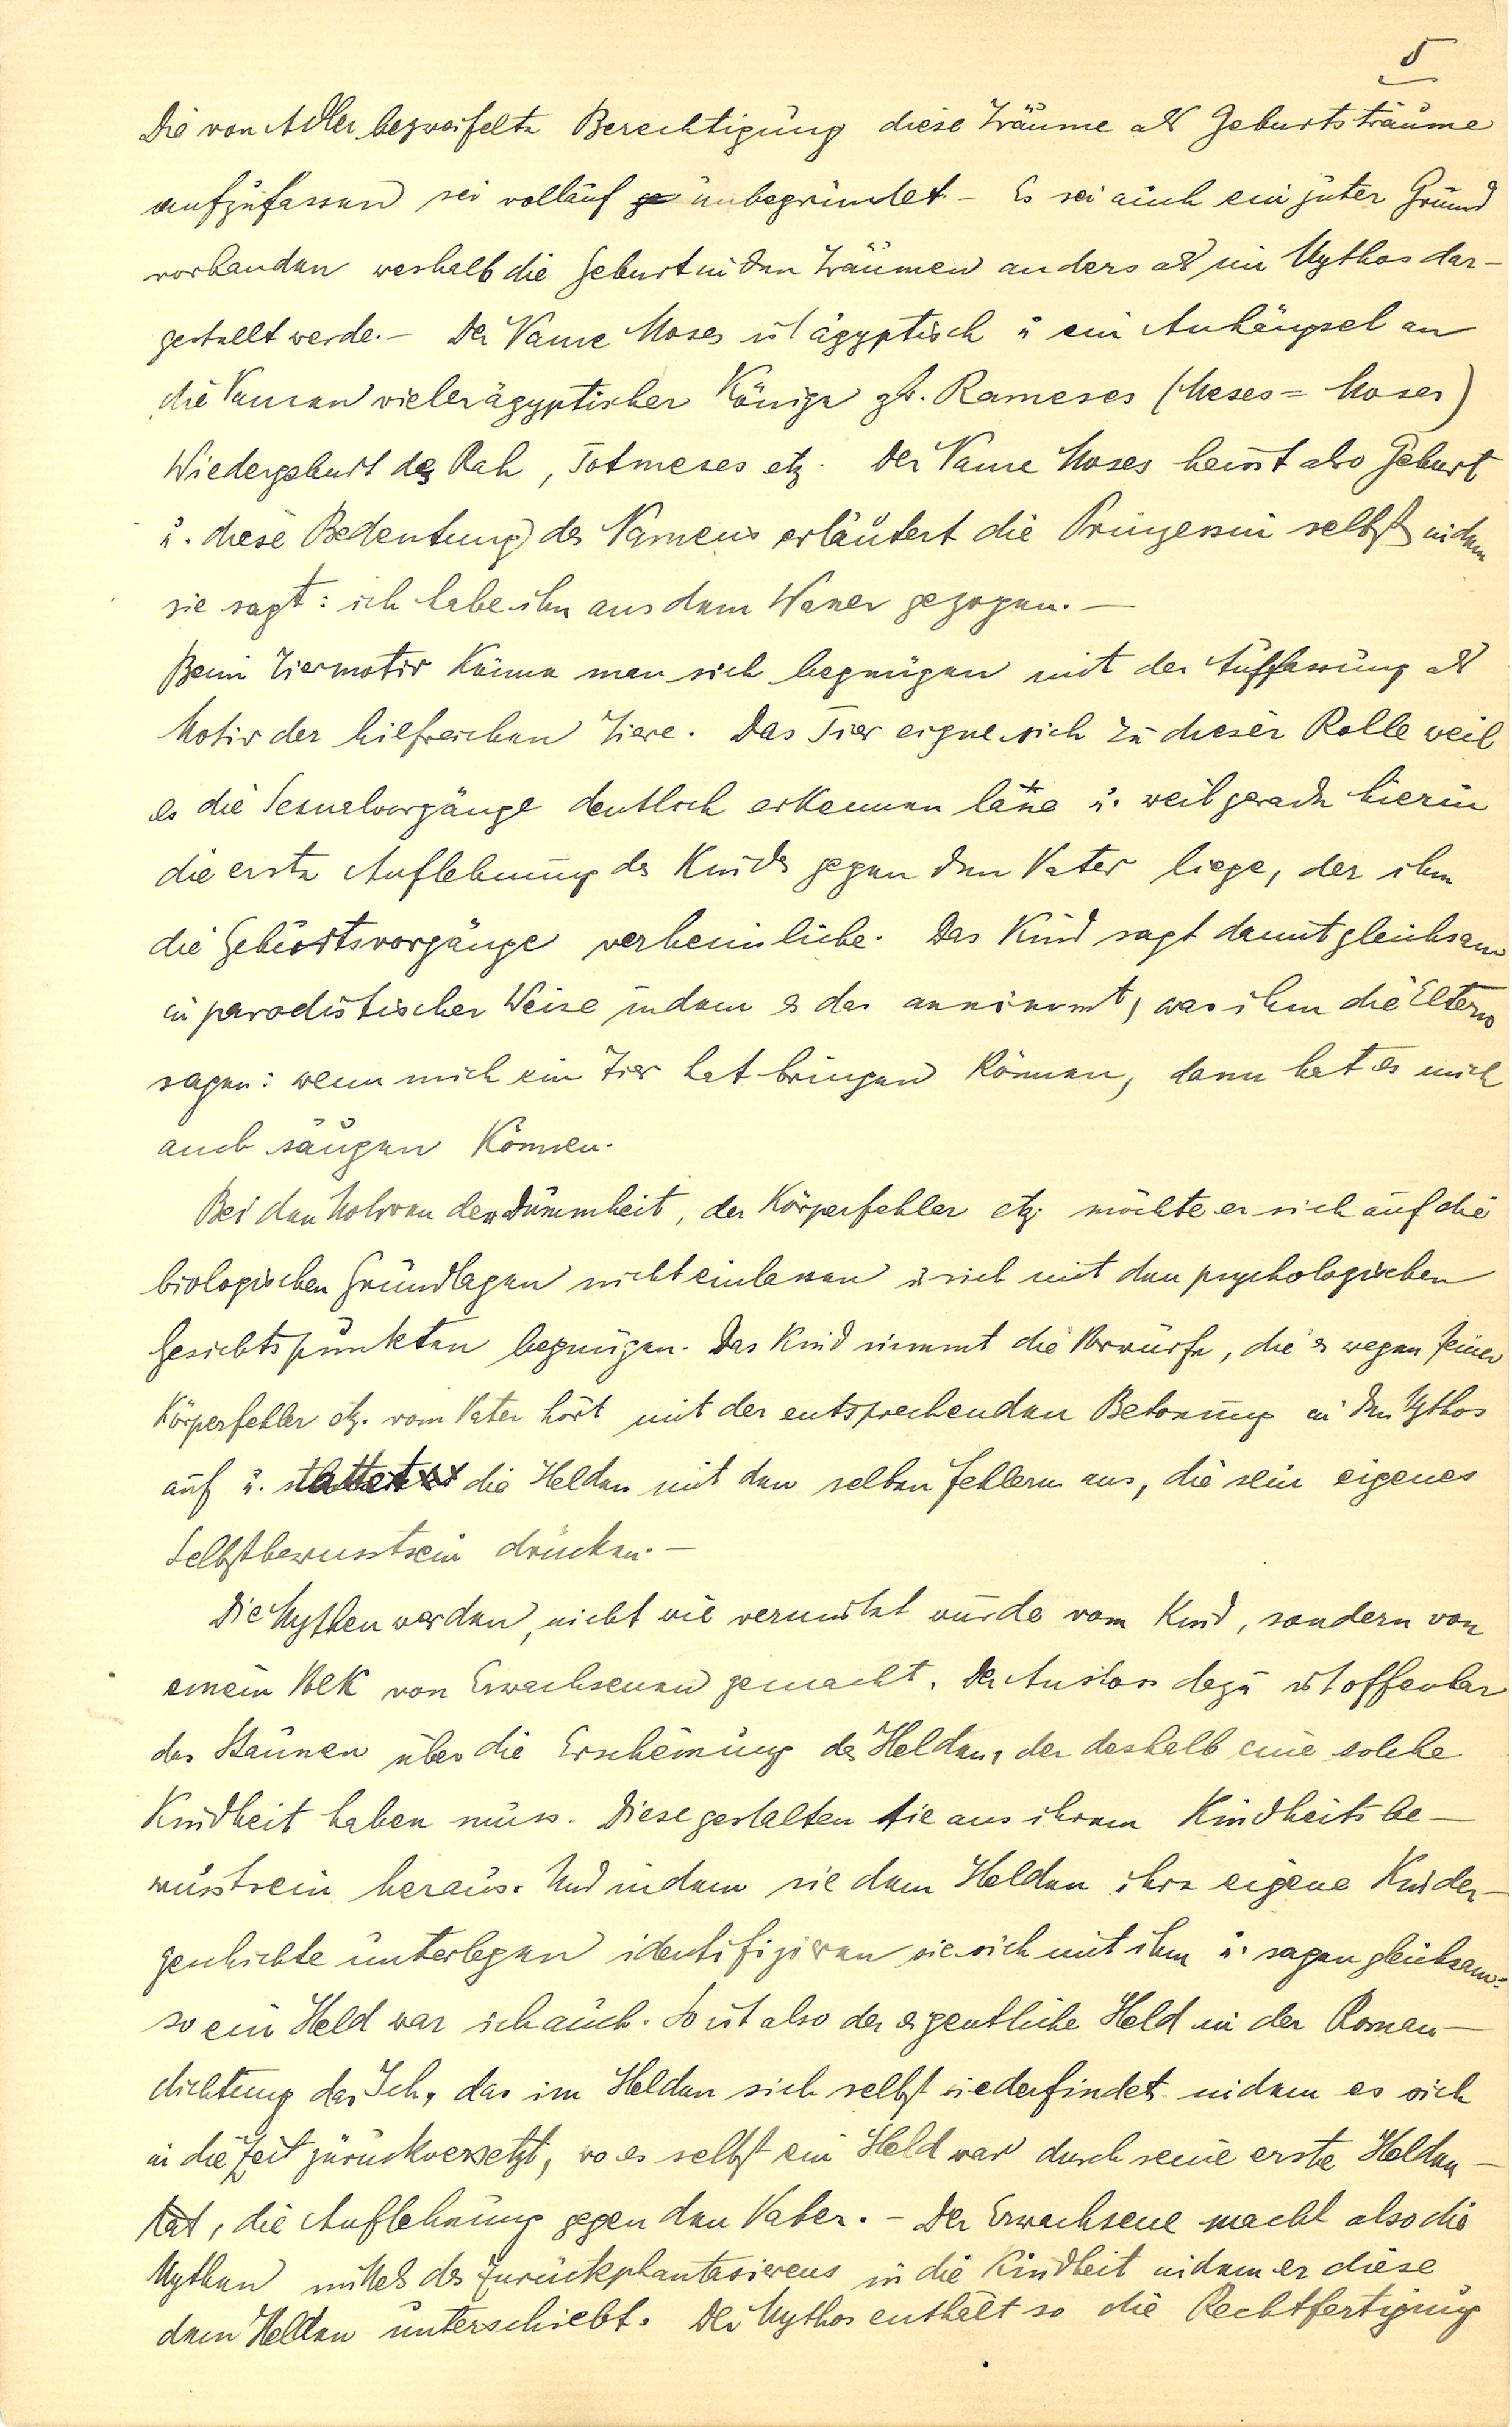 5
Die von Adler bezweifelte Berechtigung diese Träume als Geburtsträume
aufzufassen sei vollauf unbegründet – Es sei auch ein guter Grund
vorhanden weshalb die Geburt in den Träumen anders als im Mythos dar-
gestellt werde. – Der Name Moses ist ägyptisch u ein Anhängsel an
die Namen vieler ägyptischer Könige zb. Rameses (Meses = Moses)
Wiedergeburt des Rah, Totmeses etz. Der Name Moses heisst also Geburt
u. diese Bedeutung des Namens erläutert die Prinzessin selbst indem
sie sagt: ich habe ihn aus dem Wasser gezogen. –
Beim Tiermotiv könne man sich begnügen mit der Auffassung als
Motiv der hilfreichen Tiere. Das Tier eigne sich zu dieser Rolle weil
es die Sexualvorgänge deutlich erkennen lasse u. weil gerade hierin
die erste Auflehnung des Kindes gegen den Vater liege, der ihm
die Geburtsvorgänge verheimliche. Das Kind sagt damit gleichsam
in parodistischer Weise indem es das annimmt, was ihm die Eltern
sagen: wenn mich ein Tier hat bringen können, dann hat es mich
auch säugen können.
Bei den Motiven der Dummheit, der Körperfehler etz. möchte er sich auf die
biologischen Grundlagen nicht einlassen u sich mit den psychologischen
Gesichtspunkten begnügen. Das Kind nimmt die Vorwürfe, die es wegen seiner
Körperfehler etz. vom Vater hört mit der entsprechenden Betonung in den Mythos
auf u. stattet die Helden mit den selben Fehlern aus, die sein eigenes
Selbstbewusstsein drücken. –
Die Mythen werden, nicht wie vermutet wurde vom Kind, sondern von
einem Volk von Erwachsenen gemacht. Der Anstoss dazu ist offenbar
das Staunen über die Erscheinung des Helden, der deshalb eine solche
Kindheit haben muss. Diese gestalten sie aus ihrem Kindheitsbe-
wusstsein heraus. Und indem sie dem Helden ihre eigene Kinder-
geschichte unterlegen identifiziren sie sich mit ihm u. sagen gleichsam:
so ein Held war ich auch. So ist also der eigentliche Held in der Roman-
dichtung das Ich, das im Helden sich selbst wiederfindet indem es sich
in die Zeit zurückversetzt, wo es selbst ein Held war durch seine erste Helden-
tat, die Auflehnung gegen den Vater. – Der Erwachsene macht also die
Mythen mittels des Zurückphantasierens in die Kindheit indem er diese
dem Helden unterschiebt. Der Mythos enthält so die Rechtfertigung